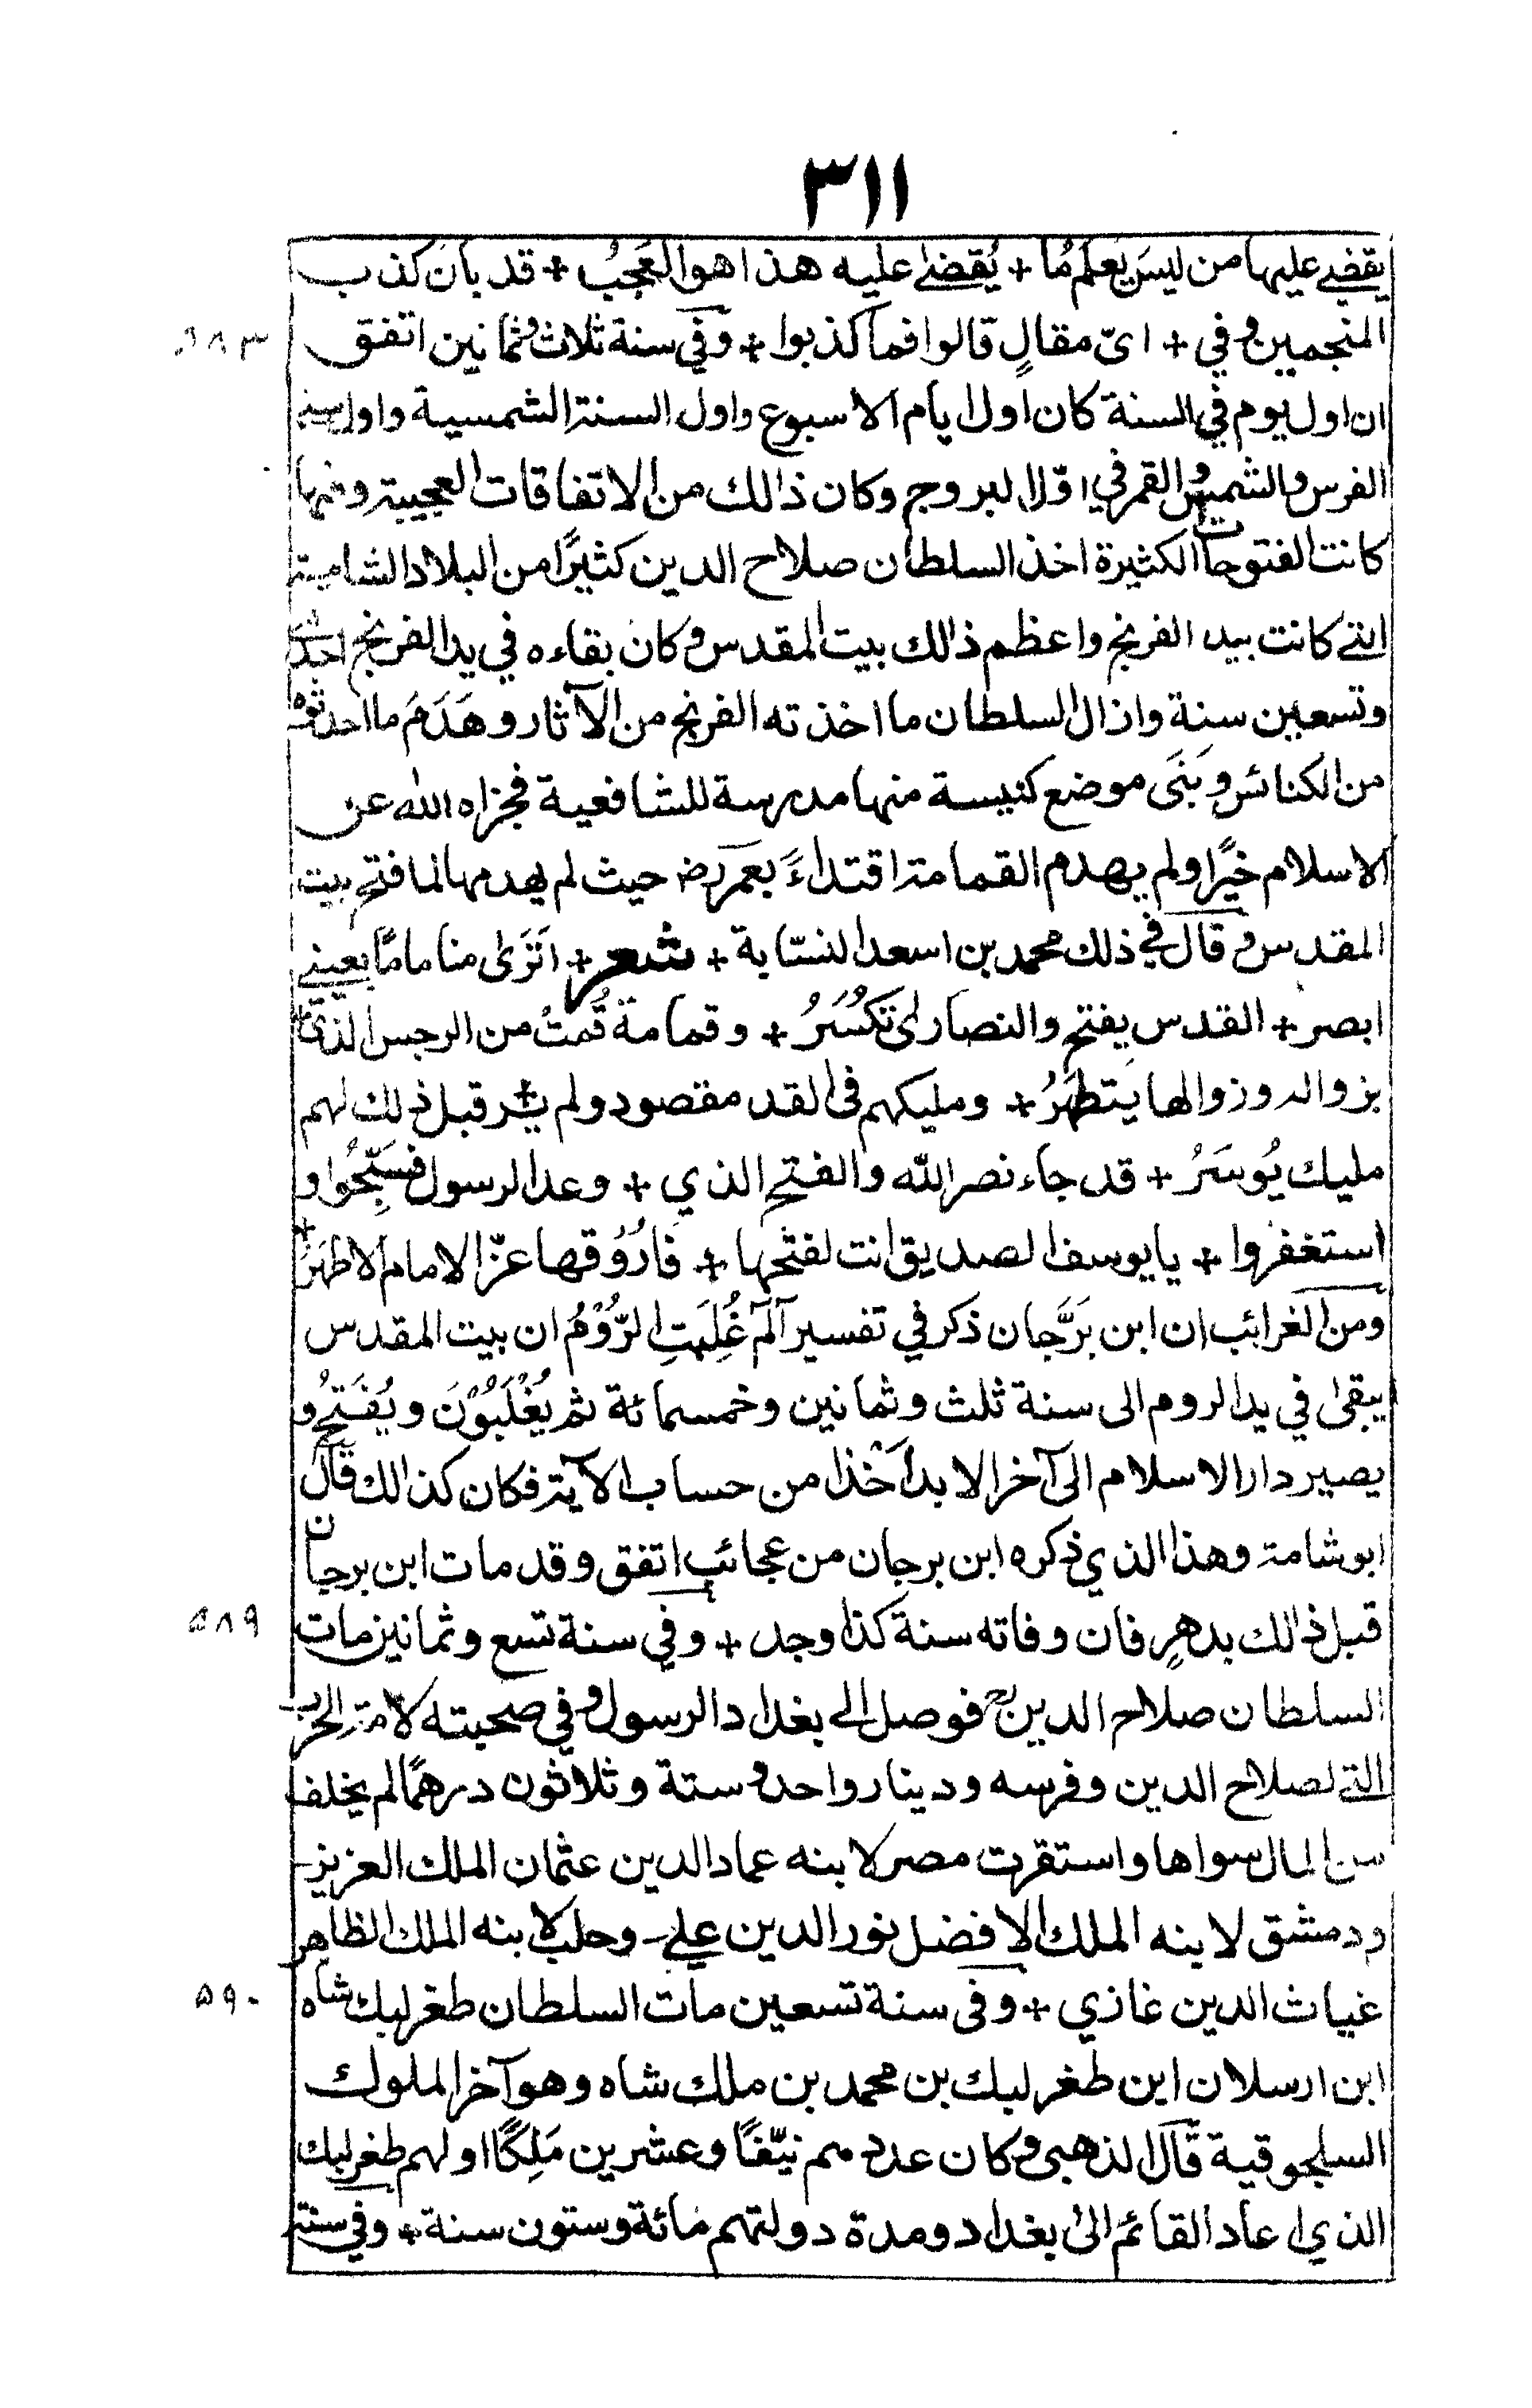 ٣١١
يقضي عليها من ليس يَعلَمُ مَا + يُقضىٰ عليه هذا هو العَجَبُ + قد بان كذب
المنجمين وفي + ايّ مقالٍ قالوا فما كذبوا + وفي سنة ثلاث وثمانين اتفق
٥٨٣
ان اول يوم في السنة كان اول ايام الاسبوع واول السنة الشمسية واول سنة
الفرس والشمس والقمر في اوّل البروج وكان ذالك من الاتفاقات العجيبة وفيها
كانت الفتوحات الكثيرة اخذ السلطان صلاح الدين كثيرًا من البلاد الشامية
التي كانت بيد الفرنج واعظم ذالك بيت المقدس وكان بقاءه في يد الفرنج احدى
وتسعين سنة وازال السلطان ما اخذته الفرنج من الآثار وهَدَمَ ما احدثوه
من الكنائس وبَنَى موضع كنيسة منها مدرسة للشافعية فجزاه الله عن
الاسلام خيرًا ولم يهدم القمامة اقتداءً بعمر رض حيث لم يهدمها لما فتح بيت
المقدس وقال في ذلك محمد بن اسعد النسّابة + شعر + اَتَرَى منامًا ما بعيني
ابصر + القدس يفتح والنصارىٰ تكسَرُ + وقمامة قُمتْ من الرجس الذي +
بزواله وزوالها يَتطهّرُ + ومليكهم في القد مقصود ولم + ير قبل ذلك لهم
مليك يُوسَرُ + قد جاء نصر اللّه والفتح الذي + وعد الرسول فسَبِّحُوا و
استغفروا + يا يوسف الصديق انت لفتحها + فارُوُقها عزّ الامام الاطهَرُ +
ومن الغرائب ان ابن بَرَّجان ذكر في تفسير آلمٓ غُلِبَتِ الرُّوْمُ ان بيت المقدس
يبقى في يد الروم الى سنة ثلث وثمانين وخمسمائة ثم يُغْلَبُوْنَ ويُفتَحُ و
يصير دار الاسلام الى آخر الابد اَخْذًا من حساب الآية فكان كذالك قال
ابو شامة وهذا الذي ذكره ابن برجان من عجائب اتفق وقد مات ابن برجان
قبل ذالك بدهرٍ فان وفاته سنة كذا وجد + وفي سنة تسع وثمانين مات
٥٨٩
السلطان صلاح الدين رح فوصل الى بغداد الرسول وفي صحبته لامة الحرب
التي لصلاح الدين وفرسه ودينار واحد وستة وثلاثون درهمًا لم يخلف
من المال سواها واستقرت مصر لابنه عماد الدين عثمان الملك العزيز
ودمشق لابنه الملك الافضل نور الدين علي وحلب لابنه الملك الظاهر
غياث الدين غازي + وفى سنة تسعين مات السلطان طغرلبك شاه
٥٩٠
ابن ارسلان ابن طغرلبك بن محمد بن ملك شاه وهو آخر الملوك
السلجوقية قال الذهبي وكان عددهم نيّفًا وعشرين مَلِكًا اولهم طغرلبك
الذي اعاد القائم الىٰ بغداد ومدة دولتهم مائة وستون سنة + وفي سنة